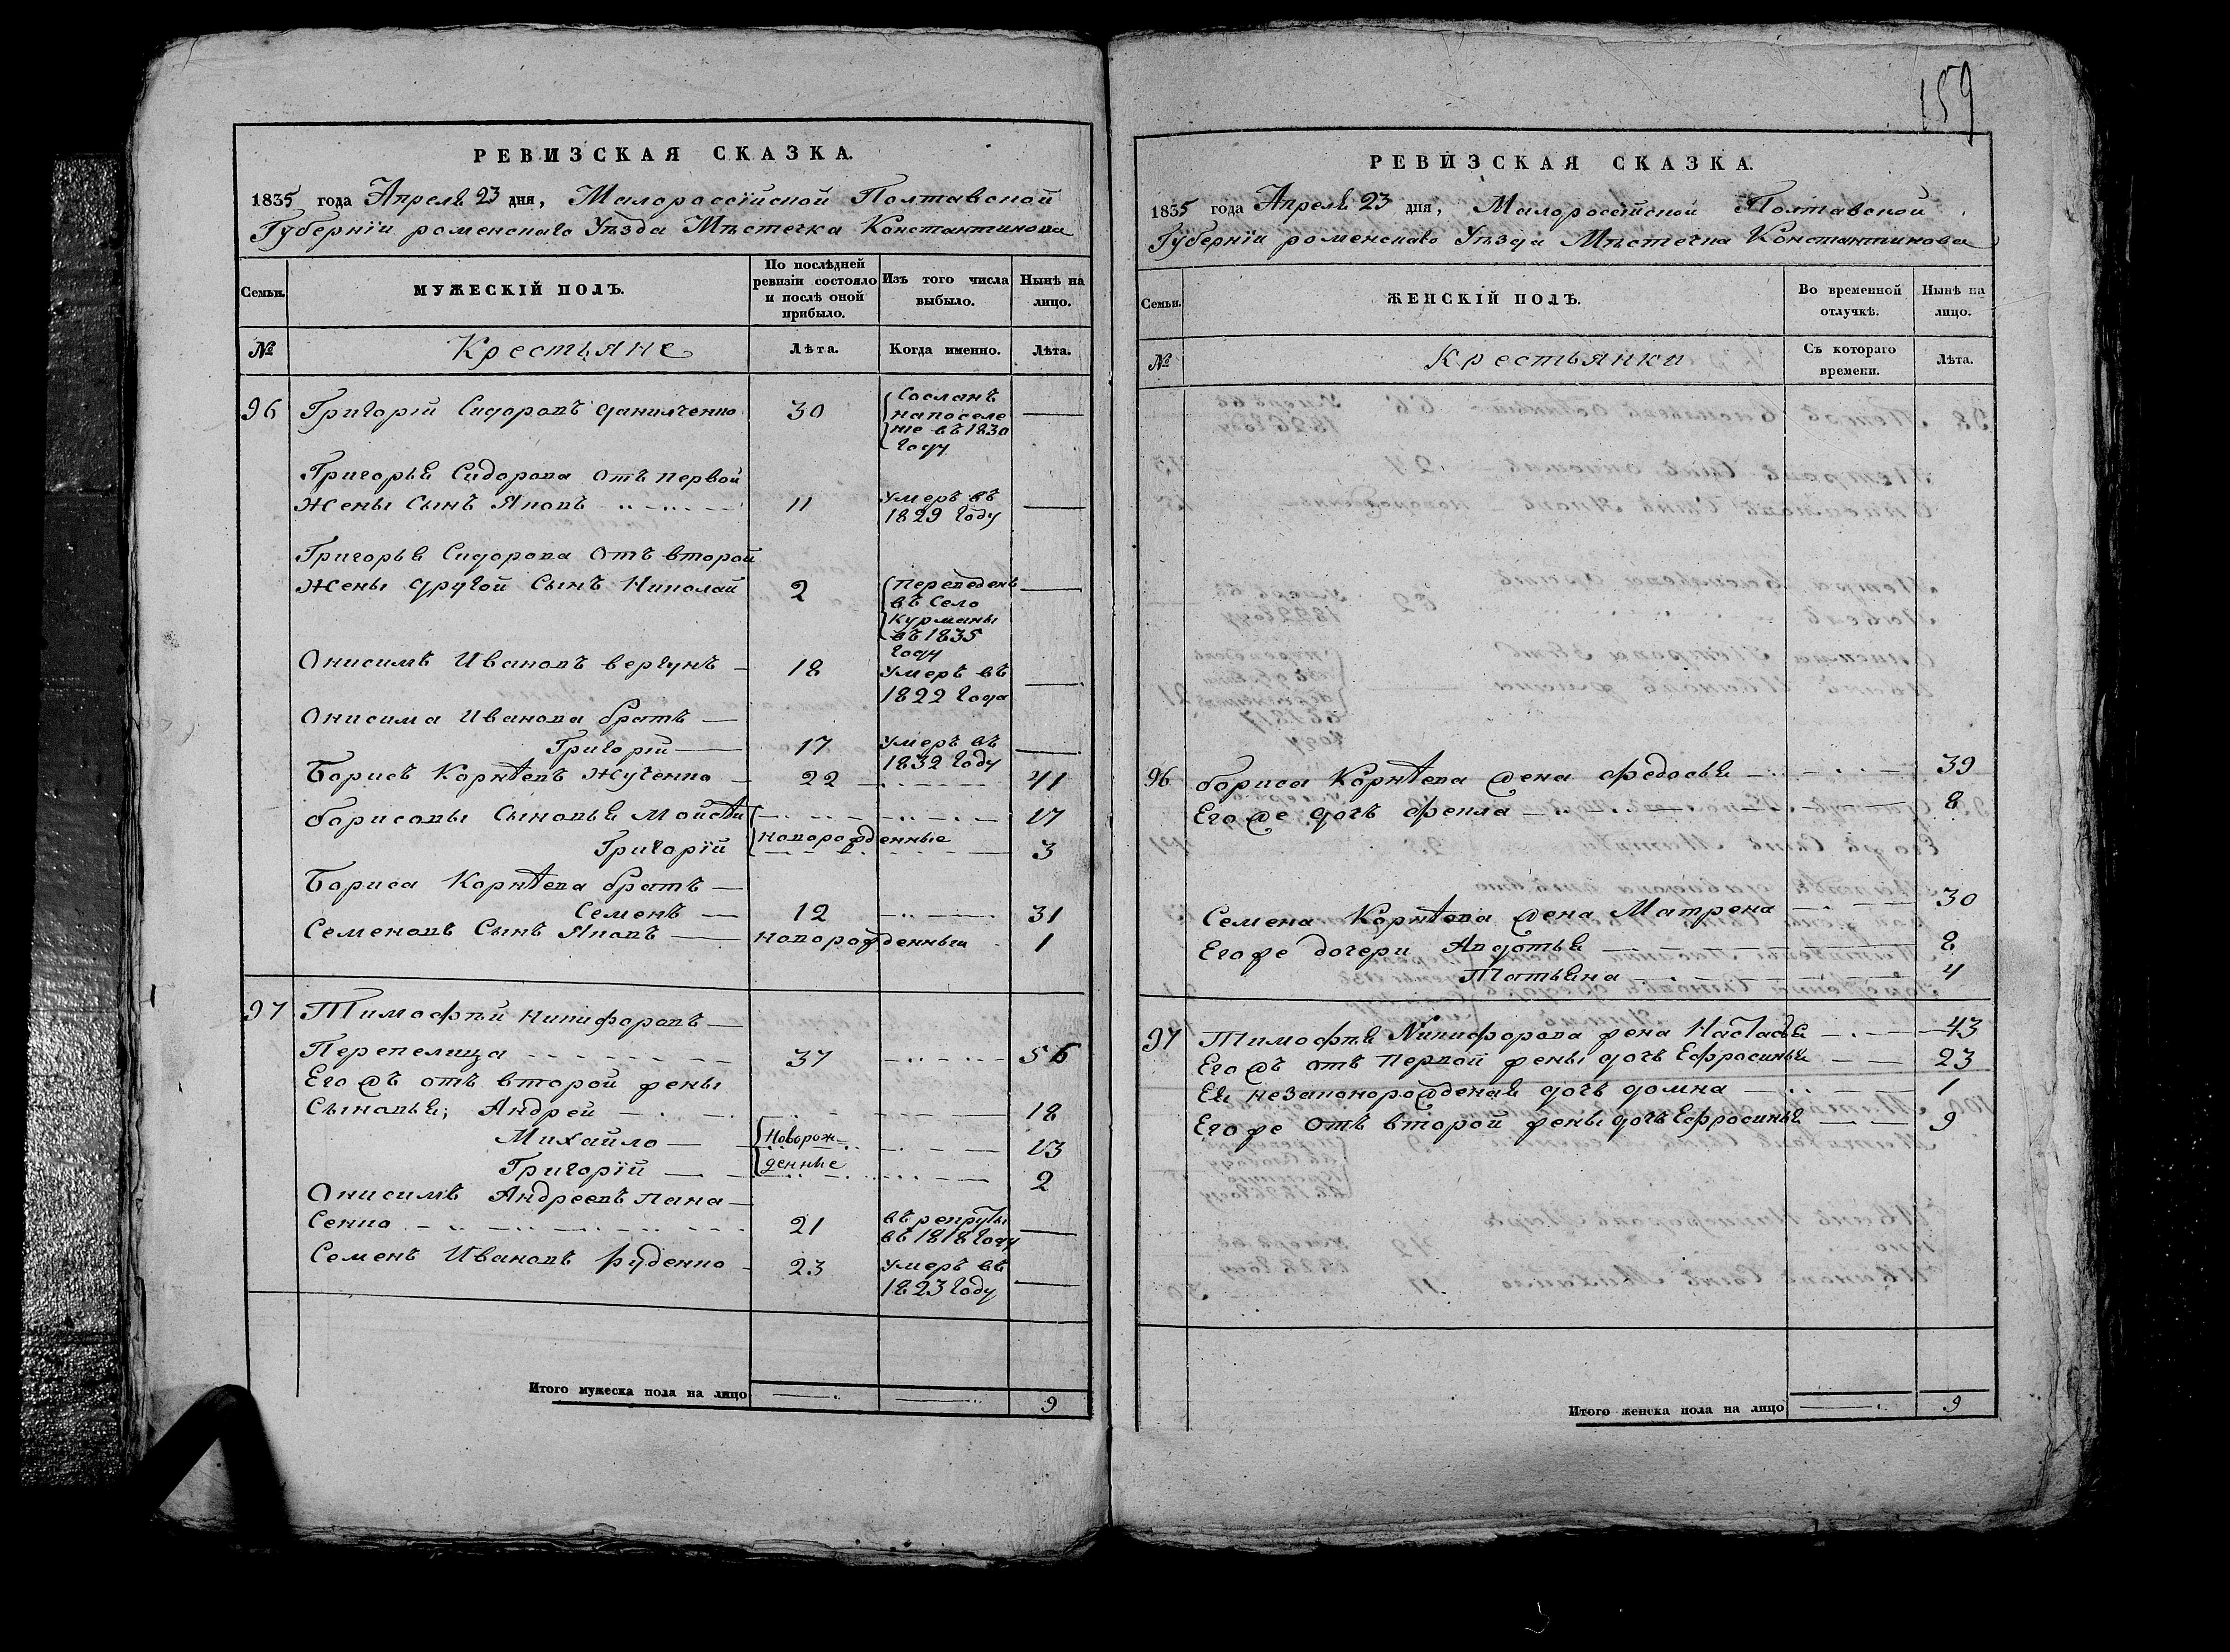 159
РЕВИЗСКАЯ СКАЗКА.
1835 года Апреля 23 дня, Малороссійской Полтавской
Губерніи роменскаго Уѣзда Мѣстечка Константинова
Семьи.
МУЖЕСКІЙ ПОЛЪ.
По послѣдней ревизіи состояло и послѣ оной прибыло.
Изъ того числа выбыло.
Нынѣ на лицо.
№
Крестьяне
Лѣта.
Когда именно.
Лѣта.
96 Григорій Сидоровъ Данилченко 30 Сосланъ
напоселе
ніе въ 1830
году
Григорья Сидорова отъ первой
жены Сынъ Яковъ 11 умеръ въ
1829 году
Григорья Сидорова отъ второй
жены другой Сынъ Николай 2 Переведенъ
въ Село
Курманы
въ 1835
году
Онисимъ Ивановъ вергунъ 18 умеръ въ
1822 года
Онисима Иванова братъ
Григорій 17 умеръ въ
1832 году
Борисъ Корнѣевъ Жученко 22 41
борисовы Сыновья Мойсѣй 17
новорожденные
Григорій 3
Бориса Корнѣева братъ
Семенъ 12 31
Семеновъ Сынъ Яковъ новорожденный 1
97 Тимофѣй Никифоровъ
Перепелица 37 56
Его жъ отъ второй жены
Сыновья; Андрей 18
Михайло Новорож- 13
Григорій денные 2
Онисимъ Андреевъ Пана
Сенко 21 въ рекруты
въ 1818 году
Семенъ Ивановъ руденко 23 умеръ въ
1823 году
Итого мужеска пола на лицо 9
РЕВИЗСКАЯ СКАЗКА.
1835 года Апреля 23 дня, Малоросійской Полтавской
Губерніи роменскаго Уѣзда Мѣстечка Константинова
Семьи.
ЖЕНСКІЙ ПОЛЪ.
Во временной отлучкѣ.
Нынѣ на лицо.
№
Крестьянки
Съ котораго времени.
Лѣта.
96 бориса Корнѣева жена федосья 39
Его же дочь фекла 8
Семена Корнѣева жена Матрена 30
Его же дочери Авдотья 8
Татьяна 4
97 Тимофѣя Никифорова жена Настасья 43
Его жъ отъ Первой жены дочь Ефросинья 23
Ея незаконорожденая дочь домна 1
Его же отъ второй жены дочь Ефросинья 9
Итого женска пола на лицо 9